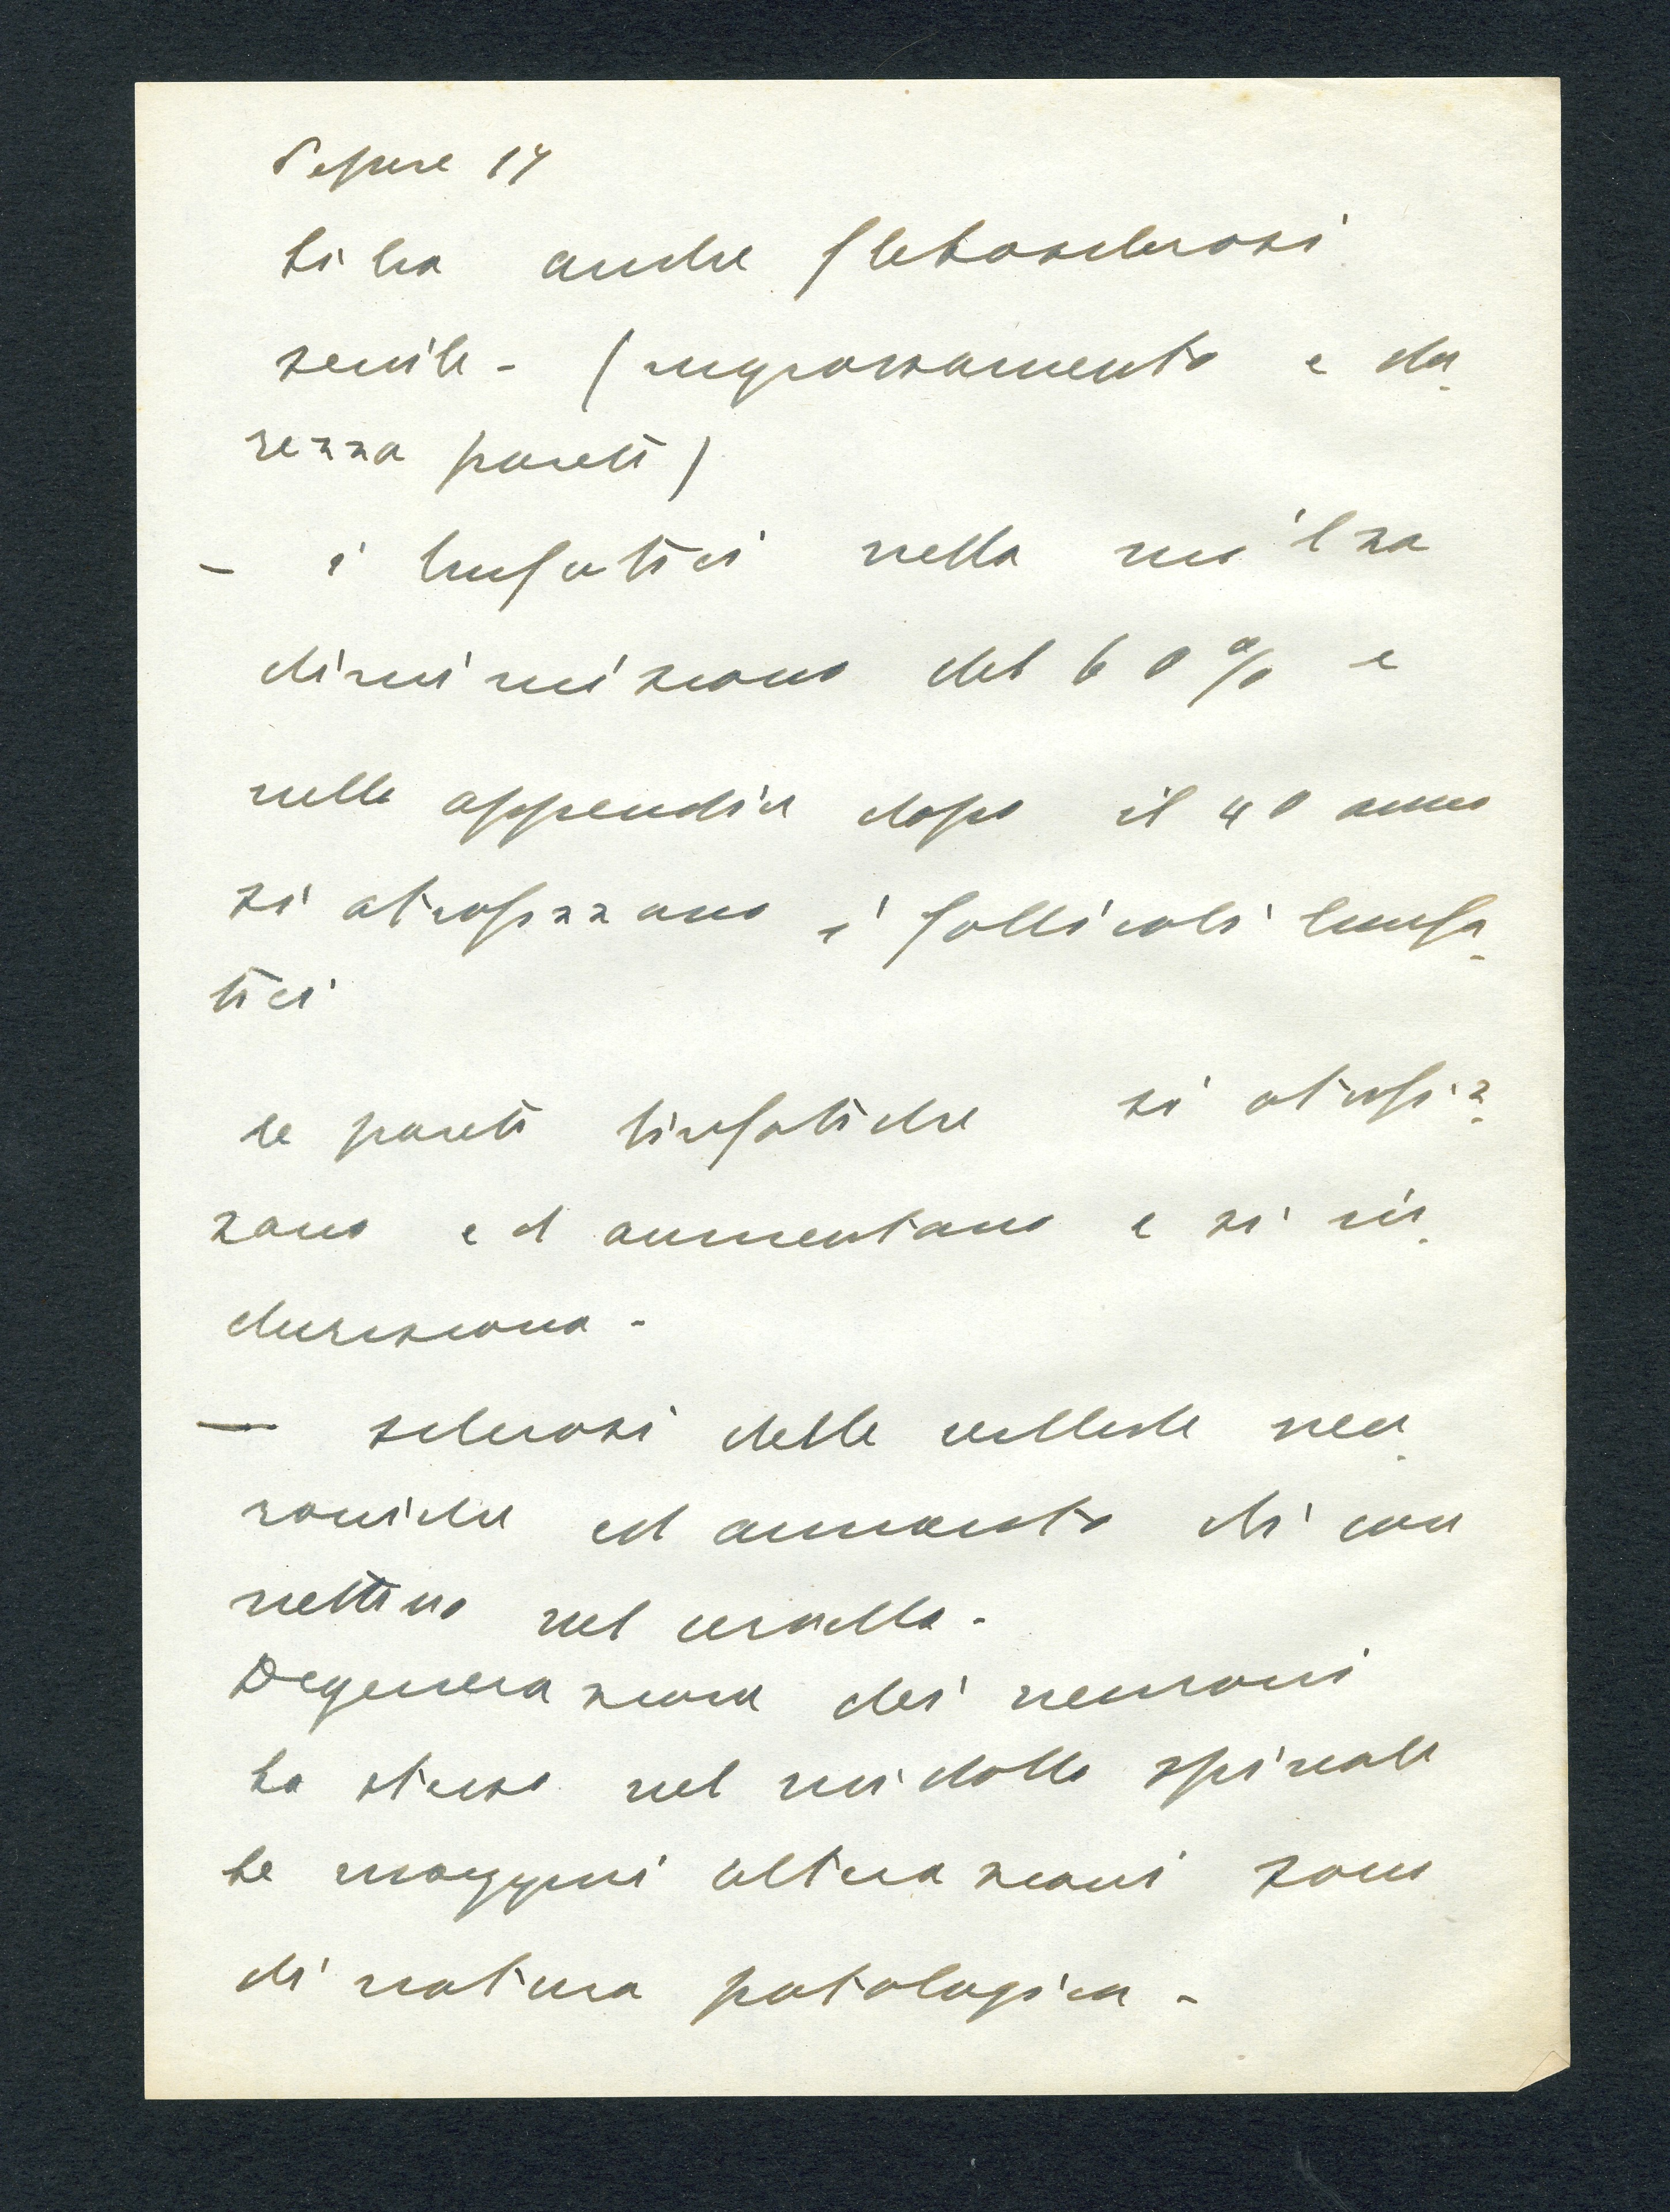 Si ha anche flebosclerosi
senile - (ingrossamento e du-
rezza pareti)
- i linfatici nella milza
diminuiscono del 60% e
nelle appendici dopo il 40 anno
si atrofizzano i follicoli linfa-
tici
le pareti linfatiche si atrofiz-
zano ed aumentano e si in-
duriscono -
- sclerosi delle cellule neu-
roniche ed aumento di con
nettivo nel cervello -
Degenerazione dei neuroni
Lo stesso nel midollo spinale
Le maggiori alterazioni sono
di natura patologica -